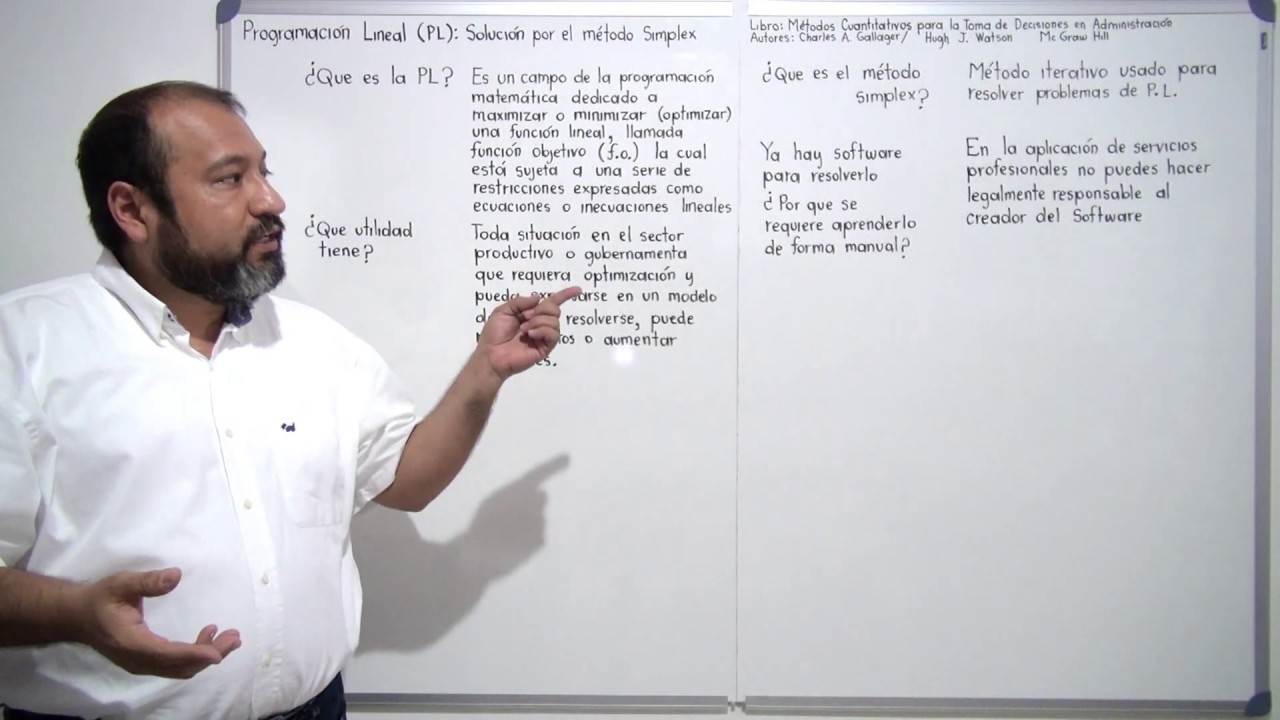 Programación Lineal (PL): Solución por el método Simplex
¿Que es la PL?
Es un campo de la programación
matemática dedicado a
maximizar o minimizar (optimizar)
una función lineal, llamada
función objetivo (f.o.) la cual
está sujeta a una serie de
restricciones expresadas como
ecuaciones o inecuaciones lineales
¿Que utilidad
tiene?
Toda situación en el sector
productivo o gubernamenta
que requiera optimización y
pueda en un modelo
resolverse, puede
o aumentar
Libro: Métodos Cuantitativos para la Toma de Decisiones en Administración
Autores: Charles A. Gallager/ Hugh J. Watson Mc Graw Hill
¿Que es el método
simplex?
Método iterativo usado para
resolver problemas de P.L.
Ya hay software
para resolverlo
¿Por que se
requiere aprenderlo
de forma manual?
En la aplicación de servicios
profesionales no puedes hacer
legalmente responsable al
creador del Software